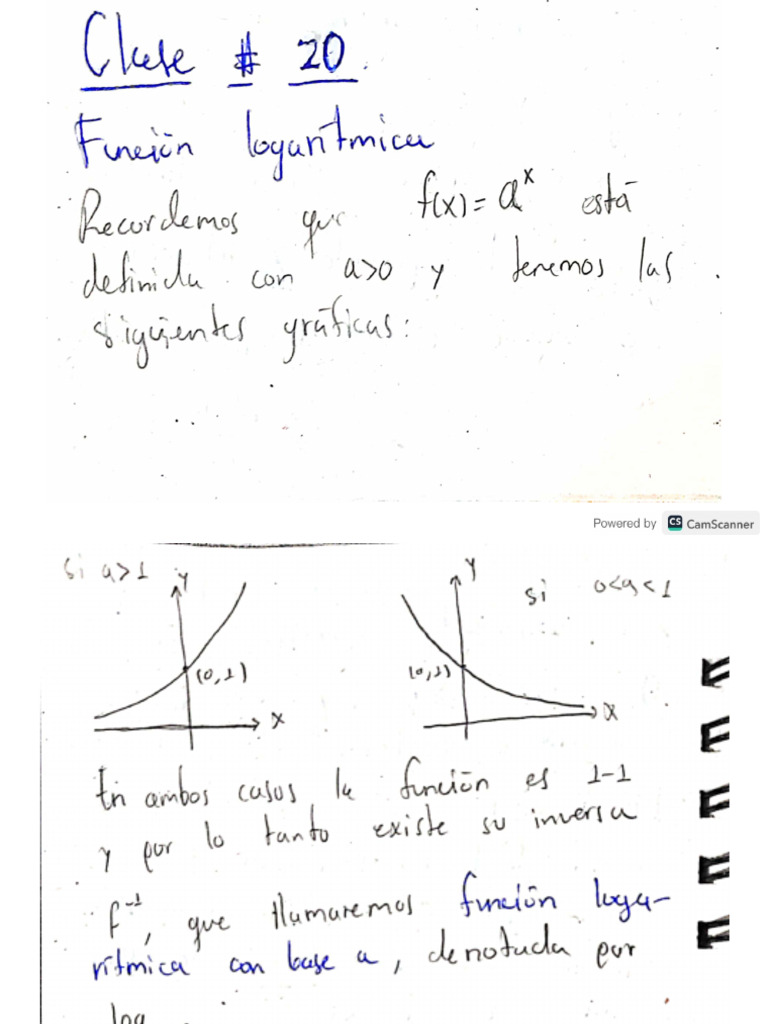 Clase # 20.
Función logarítmica
Recordemos que f(x) = a^x está
definida con a>0 y tenemos las
siguientes gráficas:
Powered by CS CamScanner
si a>1
Y
(0,1)
X
si 0<a<1
Y
(0,1)
X
En ambos casos la función es 1-1
y por lo tanto existe su inversa
f^-1, que llamaremos función loga-
rítmica con base a, denotada por
log